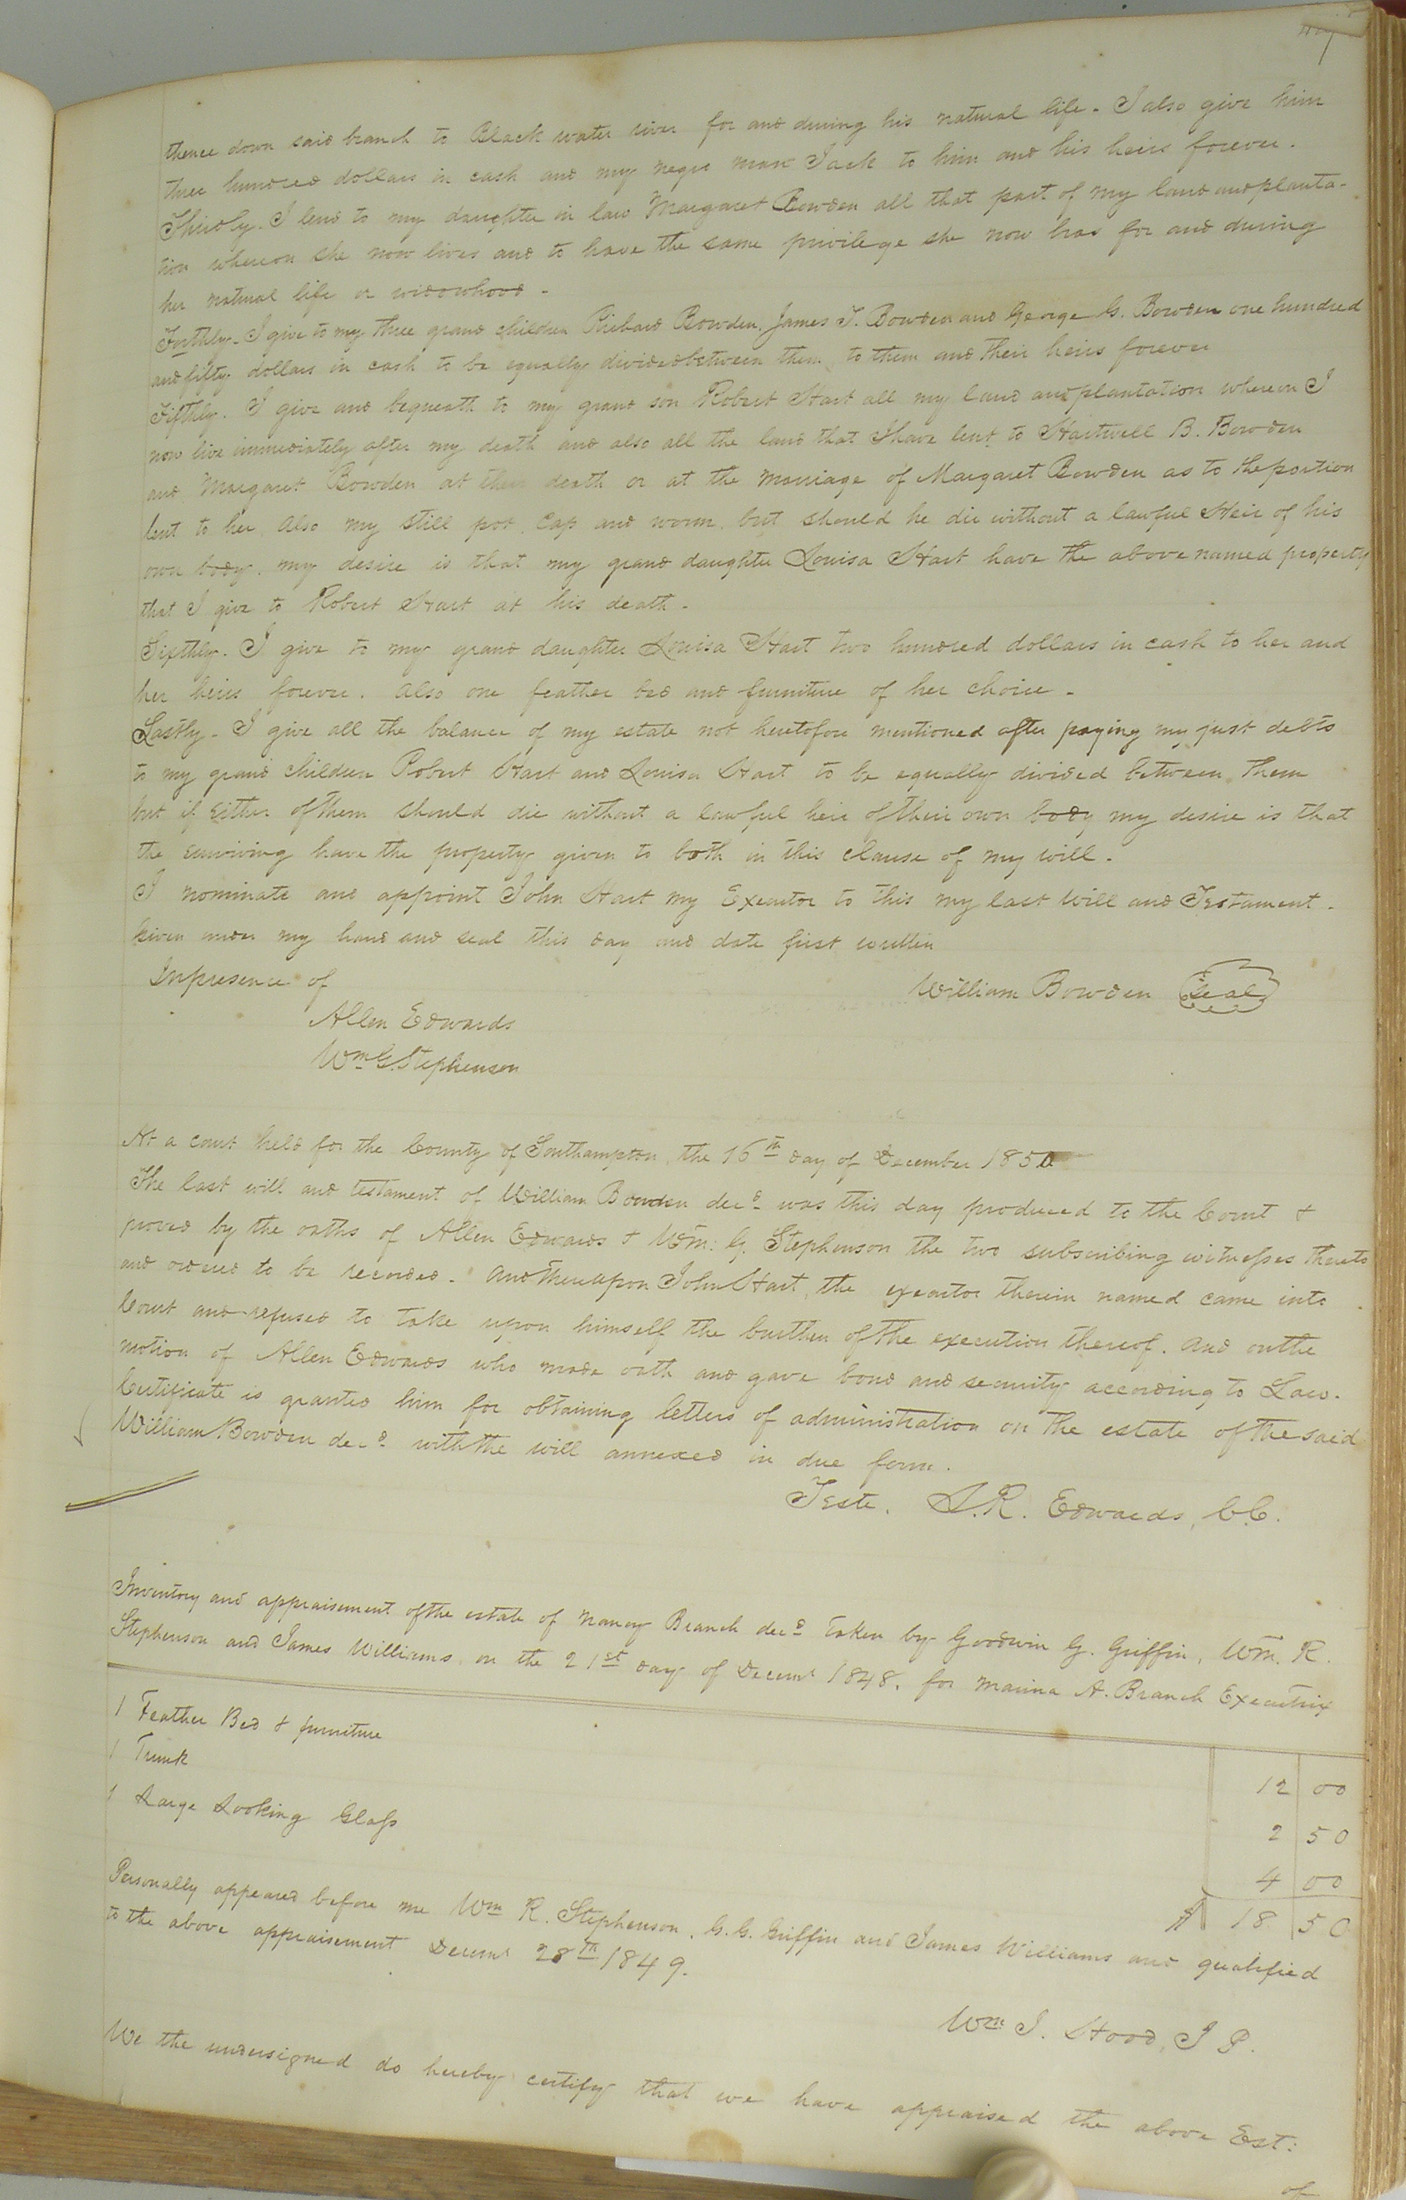 thence down said branch to Black water river for and during his natural life - I also give him
three hundred dollars in cash and my negro man Jack to him and his heirs forever.
Thirdly. I lend to my daughter in law Margaret Bowden all that part of my land and planta-
tion whereon she now lives and to have the same privilege she now has for and during
her natural life or widowhood -
Forthly - I give to my three grand children Richard Bowden, James T. Bowden and George G. Bowden one hundred
and fifty dollars in cash to be equally divided between them, to them and their heirs forever
Fifthly. I give and bequeath to my grand son Robert Hart all my land and plantation whereon I
now live immediately after my death and also all the land that I have lent to Hartwell B. Bowden
and Margaret Bowden at their death or at the marriage of Margaret Bowden as to the portion
lent to her Also my still pot, Cap and worm, but should he die without a lawful Heir of his
own body, my desire is that my grand daughter Louisa Hart have the above named property
that I give to Robert Hart at his death -
Sixthly - I give to my grand daughter Louisa Hart two hundred dollars in cash to her and
her heirs forever. also one feather bed and furniture of her choice -
Lastly - I give all the balance of my estate not heretofore mentioned after paying my just debts
to my grand children Robert Hart and Louisa Hart to be equally divided between them
but if either of them should die without a lawful heir of their own body my desire is that
the surviving have the property given to both in this clause of my will -
I nominate and appoint John Hart my Executor to this my last Will and Testament -
Given under my hand and seal this day and date first written
In presence of William Bowden Seal
Allen Edwards
Wm G. Stephenson
At a court held for the County of Southampton, the 16th day of December 1850
The last will and testament of William Bowden decd was this day produced to the Court &
proved by the oaths of Allen Edwards & Wm: G. Stephenson the two subscribing witnesses thereto
and ordered to be recorded - And thereupon John Hart, the executor therein named came into
Court and refused to take upon himself the burthen of the execution thereof. And on the
motion of Allen Edwards who made oath and gave bond and security according to Law.
Certificate is granted him for obtaining letters of administration on the estate of the said
William Bowden decd with the will annexed in due form.
Teste. L.R. Edwards, C.C.
Inventory and appraisement of the estate of Nancy Branch decd taken by Goodwin G. Griffin, Wm. R.
Stephenson and James Williams, on the 21st day of Decemr 1848, for Marina A. Branch Executrix
1 Feather Bed & furniture 12 00
1 Trunk 2 50
1 Large Looking Glass 4 00
$ 18 50
Personally appeared before me Wm R. Stephenson, G. G. Griffin and James Williams and qualified
to the above appraisement Decemr 28th 1849.
Wm J. Hood, J P.
We the undersigned do hereby certify that we have appraised the above Est:
of